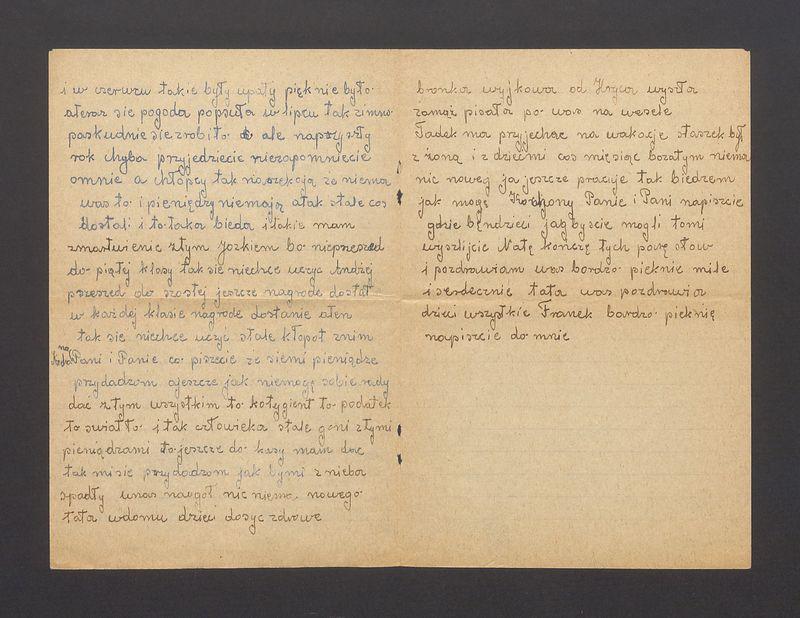 i w czerwcu takie były upały pięknie było
ateraz sie pogoda popsuła w lipcu tak zimno
paskudnie sie zrobiło ale naprzyszły
rok chyba przyjedziecie niezapomniecie
omnie a chłopcy tak nażekają że niema
was to i pieniędzy niemają atak stale cos
dostali i to taka bieda i takie mam
zmartwienie ztym Jozkiem bo nieprzeszed
do piątej klasy tak sie niechce uczyc Andżej
przeszed do szostej jeszcze nagrode dostał
w każdej klasie nagrode dostanie aten
tak sie niechce uczyć stale kłopot znim
na
Pani i Panie co piszecie że siemi pieniądze
przydadzom ajeszcze jak niemogę sobie rady
dać ztym wszystkim to kołtygient to podatek
to swiatło i tak człowieka stale goni ztymi
pieniądzami to jeszcze do kasy mam dac
tak mi sie przydadzom jak bymi z nieba
spadły unas naogół nic niema nowego
tata wdomu dzieci dosyc zdrowe
bronka wyjkowa od Hryca wyszła
zamąż pisała po was na wesele
Tadek ma przyjechac na wakacje staszek był
z żoną i z dziećmi cos miesiąc pozatym niema
nic noweg ja jeszcze pracuje tak biedzem
jak mogę Kochony Panie i Pani napiszcie
gdzie będzieci jagbyscie mogli tomi
wyszlijcie Natę kończę tych parę słow
i pozdrawiam was bardzo pięknie mile
i serdecznie tata was pozdrawia
dzieci wszystkie Franek bardzo pięknię
napiszcie do mnie